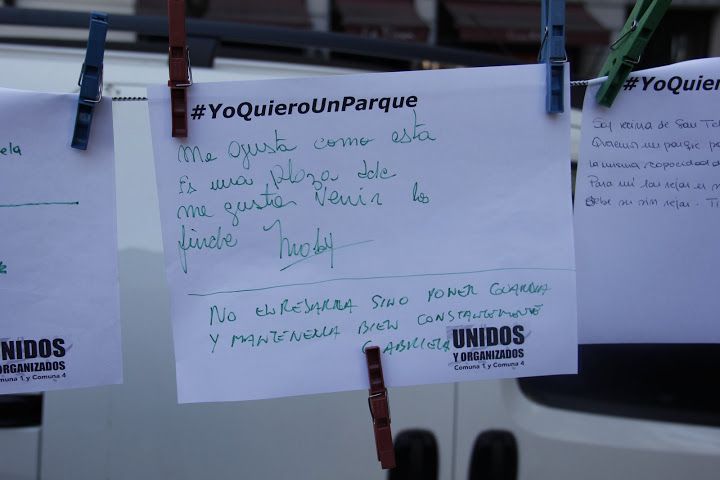 ela
NIDOS
ORGANIZADOS
omuna 1 y Comuna 4
#YoQuieroUnParque
Me gusta como esta
Es una plaza dde
me gusta venir los
finde
NO ENREJARLA SINO PONER GUARDIA
Y MANTENERLA BIEN CONSTANTEMENTE
GABRIELA
UNIDOS
Y ORGANIZADOS
Comuna 1 y Comuna 4
#YoQuieroUn
Soy vecina de San Tel
Queremos un parque
la misma capacidad d
Para mi las rejas es
sin rejas.